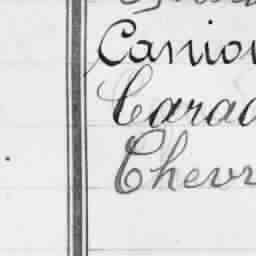 Canion
Carad
Chevr